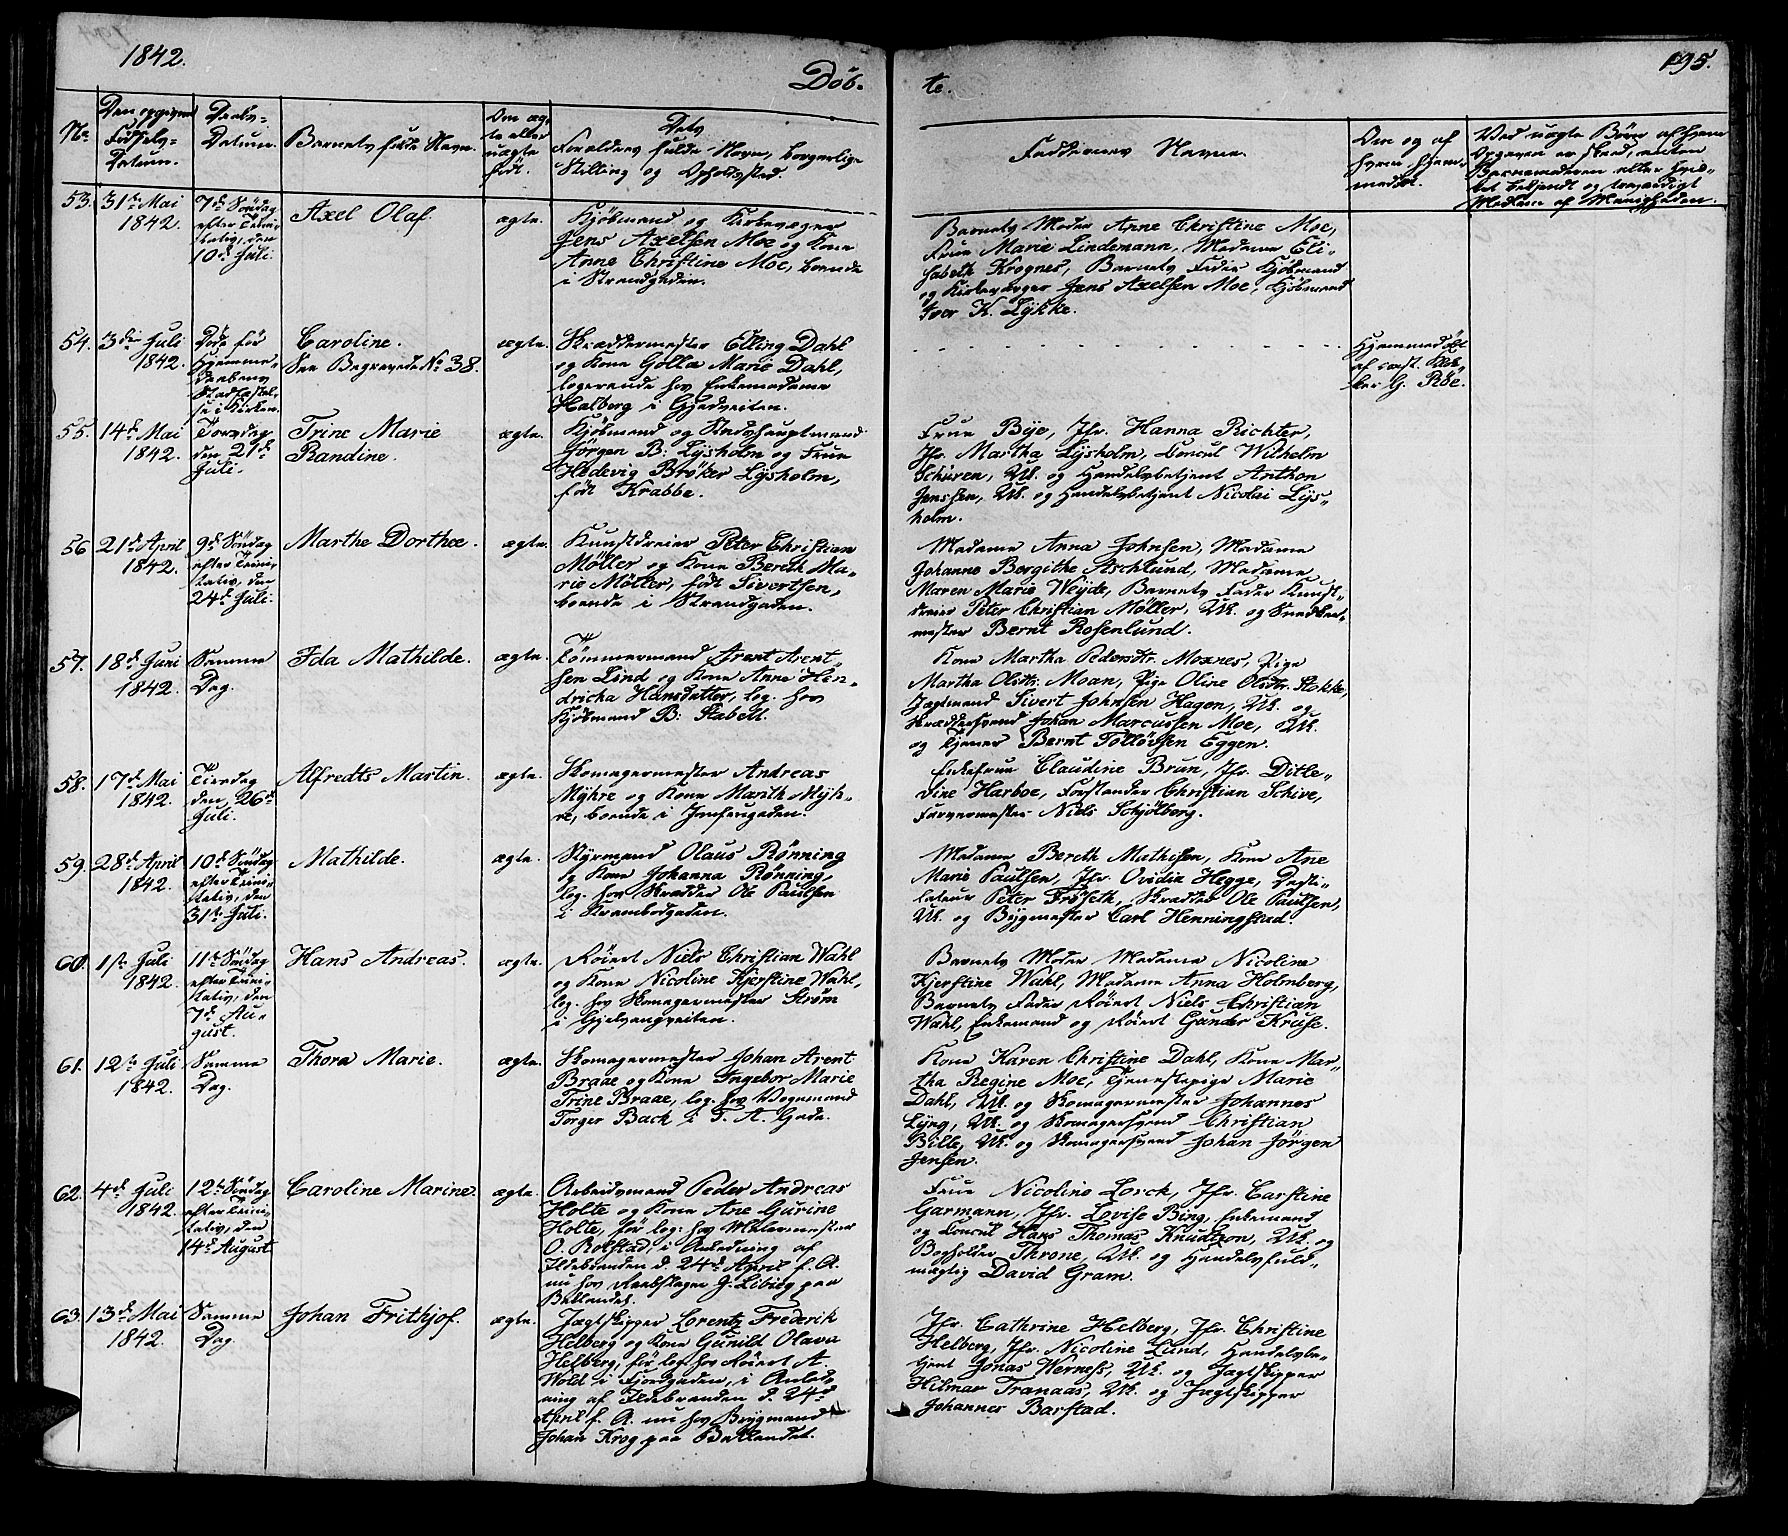 1842.
195.
Døb-
te.
No
Den opgivne Fødsels-Datum.
Daabs-Datum.
Barnets fulde Navn.
Om ægte eller uægte født.
Forældres fulde Navn, borgerlige Stilling og Opholdssted.
Faddernes Navne.
Om og af hvem hjemmedøbt.
53. 31te Mai 1842.
7de Søndag
efter Trini-
tatis, den
10de Juli.
Axel Olaf.
ægte.
Kjøbmand og Kirkeværger
Jens Axelsen Moe og Kone
Anne Christine Moe, boende
i Strandgaden.
Barnets Moder Anne Christine Moe,
Frue Marie Lindemann, Madame Eli-
sabeth Krognes, Barnets Fader Kjøbmand
og Kirkeværger Jens Axelsen Moe, Kjøbmand
Iver K. Lykke.
54. 3die Juli 1842.
Døde før
Hjemme-
daabens
Stadfæstel-
se i Kirken.
Caroline.
See Begravede No 38.
ægte.
Skræddermester Elling Dahl
og Kone Golla Marie Dahl,
logerende hos Enkemadame
Halberg i Gjedveiten.
Hjemmedøbt
af const. Klok-
ker G. Røe.
55. 14de Mai 1842.
Torsdag
den 21de
Juli.
Trine Marie
Randine.
ægte.
Kjøbmand og
Jørgen B. Lysholm og Frue
Hedevig Brøker Lysholm,
født Krabbe.
Frue Bye, Jfr. Hanna Richter,
Jfr. Martha Lysholm, Consul Wilhelm
Schüren, Uk. og Handelsbetjent Anthon
Jenssen, Uk. og Handelsbetjent Nicolai Lys-
holm.
56 21de April 1842.
9de Søndag
efter Trini-
tatis, den
24de Juli.
Marthe Dorthee.
ægte.
Kunstdreier Peter Christian
Møller og Kone Bereth Ma-
rie Møller, født Sivertsen,
boende i Strandgaden.
Madame Anna Johnsen, Madame
Johanne Bergithe Aschlund, Madame
Maren Marie Weyde, Barnets Fader Kunst-
dreier Peter Christian Møller, Uk. og Snedker-
mester Bernt Rosenlund.
57. 18de Juni 1842.
Samme
Dag.
Ida Mathilde.
ægte.
Tømmermand Arent Arent-
sen Lind og Kone Anne Hen-
dricha Hansdatter, log. hos
Kjøbmand B. Stabell.
Kone Martha Pedersdtr. Moxnes, Pige
Martha Olsdtr. Moan, Pige Oline Olsdtr. Stokke,
Jagtmand Sivert Johnsen Hagen, Uk. og
Skræddersvend Johan Marcussen Moe, Uk.
og Tjener Bernt Tolløvsen Eggen.
58. 17de Mai 1842.
Tirsdag
den 26de
Juli.
Alfredts Martin.
ægte.
Skomagermester Andreas
Myhre og Kone Marith Myh-
re, boende i Jomfrugaden.
Enkefrue Claudine Brun, Jfr. Ditle-
vine Harboe, Forstander Christian Schive,
Farvermester Niels Schjølberg.
59. 28de April 1842.
10de Søndag
efter Trini-
tatis, den
31te Juli.
Mathilde.
ægte.
Styrmand Olaus Rønning
og Kone Johanna Rønning,
log. hos Skrædder Ole Paulsen
i Krambodgaden.
Madame Bereth Mathisen, Kone Ane
Marie Paulsen, Jfr. Ovidia Hegge, Desti-
lateur Peter Frøseth, Skrædder Ole Paulsen,
Uk. og Bygmester Carl Henningstad.
60. 1ste Juli 1842.
11te Søndag
efter Trini-
tatis, den
7de Au-
gust.
Hans Andreas.
ægte.
Niels Christian Wahl
og Kone Nicoline Kjerstine Wahl,
log. hos Skomagermester Strøm
i Gjelvangveiten.
Barnets Moder Madame Nicoline
Kjerstine Wahl, Madame Anna Holmberg,
Barnets Fader Niels Christian
Wahl, Enkemand og Gunder Kruse.
61. 12te Juli 1842.
Samme
Dag.
Thora Marie.
ægte.
Skomagermester Johan Arent
Braae og Kone Ingebor Marie
Trine Braae, log. hos Vognmand
Torger Bach i T. A. Gade.
Kone Karen Christine Dahl, Kone Mar-
tha Regine Moe, Tjenestepige Marie
Dahl, Uk. og Skomagermester Johannes
Lyng, Uk. og Skomagersvend Christian
Bille, Uk. og Skomagersvend Johan Jørgen
Jensen.
62. 4de Juli 1842.
12te Søndag
efter Trini-
tatis, den
14de August
Caroline Marine.
ægte.
Arbeidsmand Peder Andreas
Holte og Kone Ane Gurine
Holte, før log. hos Malermester
O. Rolstad, i Anledning af
Ildebranden d. 24de April f. A.
nu hos Rebslager G. Libiig paa
Baklandet.
Frue Nicoline Lorck, Jfr. Carstine
Garmann, Jfr. Lovise Bing, Enkemand
og Consul Hans Thomas Knudtzon, Uk. og
Bogholder Throne, Uk. og Handelsfuld-
mægtig David Gram.
63. 13de Mai 1842.
Samme
Dag.
Johan Frithjof.
ægte.
Jagtskipper Lorentz Frederik
Helberg og Kone Gunild Olava
Helberg, før log. hos A.
Wold i Fjordgaden, i Anled-
ning af Ildebranden d. 24de
April f. A. nu hos Brygmand
Johan Krog paa Baklandet.
Jfr. Cathrine Helberg, Jfr. Christine
Helberg, Jfr. Nicoline Lund, Handelsbe-
tjent Jonas Werness, Uk. og Jagtskipper
Hilmar Tranaas, Uk. og Jagtskipper
Johannes Barstad.